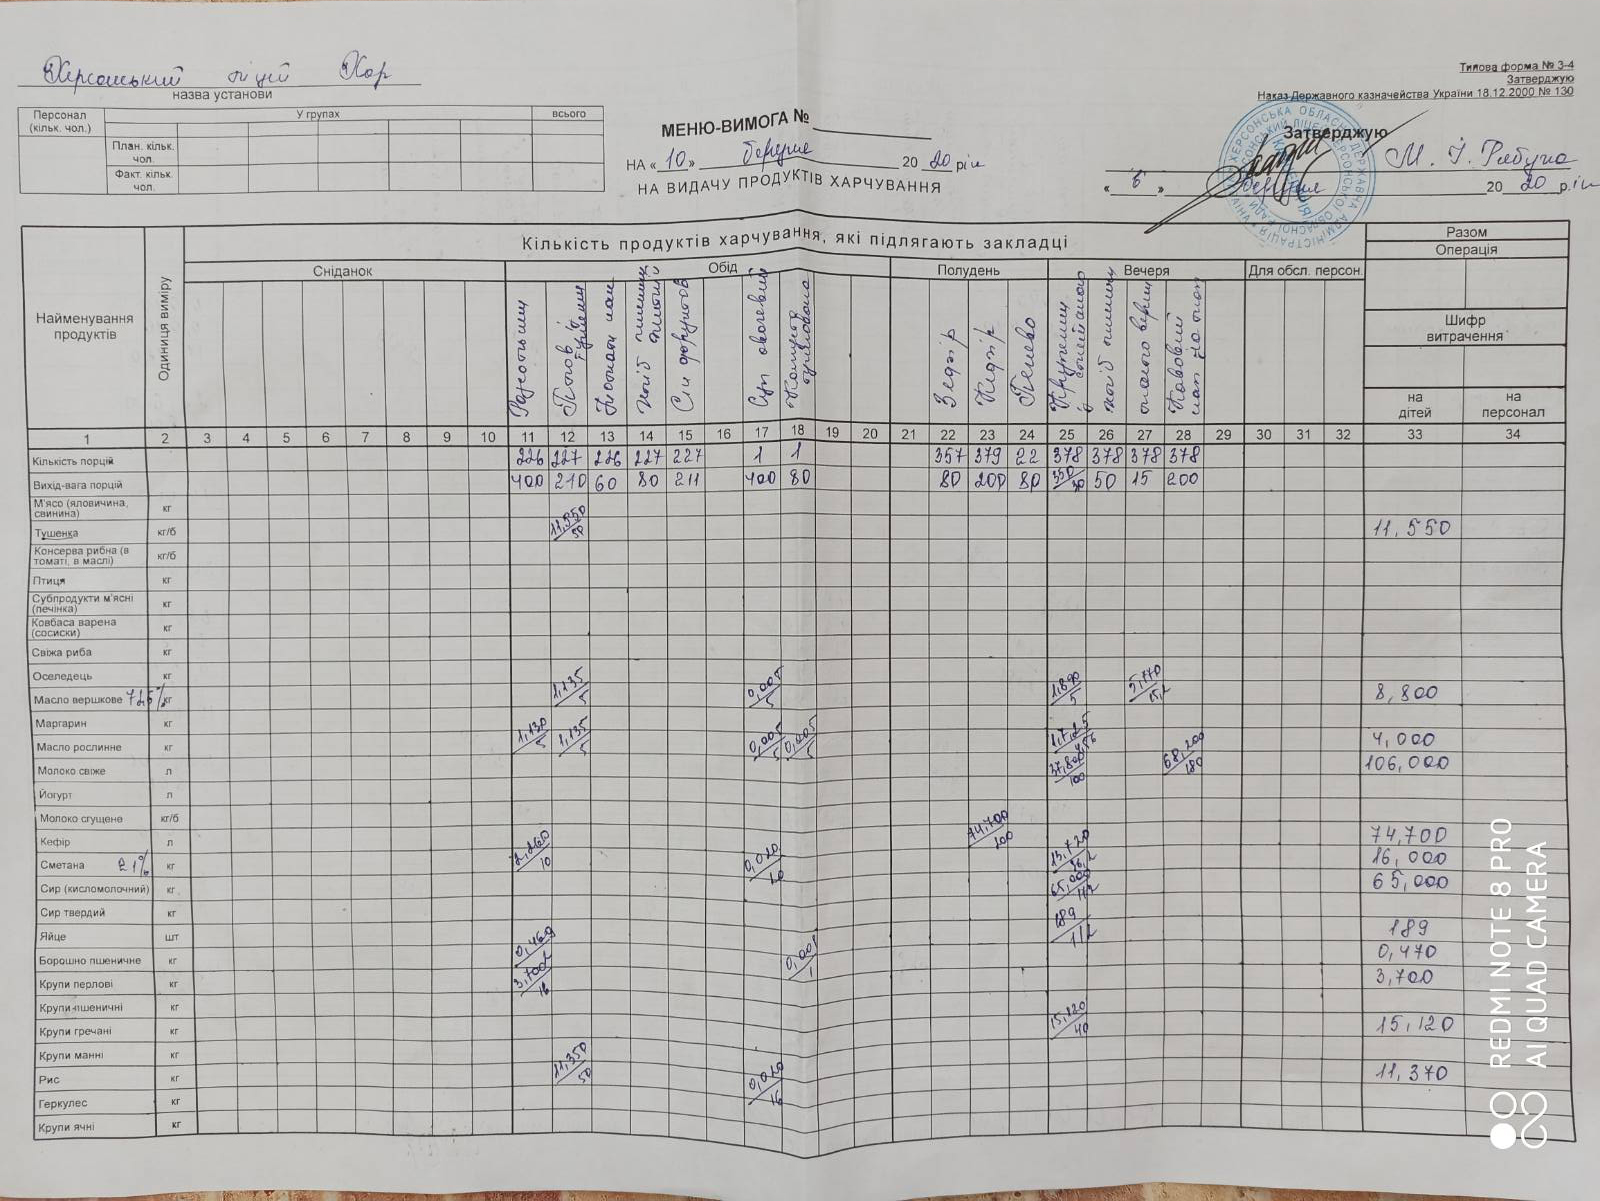 Херсонський ліцей Хор
назва установи
Типова форма № З-4
Затверджую
Наказ Державного казначейства України 18.12.2000 № 130
Персонал (кільк. чол.)
У групах
всього
План. кільк. чол.
Факт. кільк. чол.
МЕНЮ-ВИМОГА №
НА «10» березня 2020 рік
НА ВИДАЧУ ПРОДУКТІВ ХАРЧУВАННЯ
Затверджую
М. І. Рябуха
« 6 » березня 2020 рік
Кількість продуктів харчування, які підлягають закладці
Разом
Операція
Найменування продуктів
Одиниця виміру
Сніданок
Обід
Полудень
Вечеря
Для обсл. персон.
Плов з
Хліб пшенич
Сік фруктов
Суп овочевий
Зефір
Кефір
Печиво
хліб пшенич
масло верш
Кавовий нап на мол
Шифр витрачення
на дітей
на персонал
1 2 3 4 5 6 7 8 9 10 11 12 13 14 15 16 17 18 19 20 21 22 23 24 25 26 27 28 29 30 31 32 33 34
Кількість порцій 226 227 226 227 227 1 1 357 379 22 378 378 378 378
Вихід-вага порцій 400 210 60 80 211 400 80 80 200 80 350/30 50 15 200
М'ясо (яловичина, свинина) кг
Тушенка кг/б 11,550/50 11,550
Консерва рибна (в томаті, в маслі) кг/б
Птиця кг
Субпродукти м'ясні (печінка) кг
Ковбаса варена (сосиски) кг
Свіжа риба кг
Оселедець кг
Масло вершкове 72,5% кг 1,135/5 0,005/5 1,890/5 5,770/15,2 8,800
Маргарин кг
Масло рослинне кг 1,130/5 1,135/5 0,005/5 0,005/5 4,000
Молоко свіже л 37,800/100 68,200/180 106,000
Йогурт л
Молоко сгущене кг/б
Кефір л 74,700/200 74,700
Сметана 21% кг 2,260/10 0,010/10 13,720/36,2 16,000
Сир (кисломолочний) кг 65,000/172 65,000
Сир твердий кг
Яйце шт 189/1/2 189
Борошно пшеничне кг 0,469 0,001/1 0,470
Крупи перлові кг 3,700/16 3,700
Крупи пшеничні кг
Крупи гречані кг 15,120/40 15,120
Крупи манні кг
Рис кг 11,350/50 0,020/16 11,370
Геркулес кг
Крупи ячні кг
REDMI NOTE 8 PRO
AI QUAD CAMERA